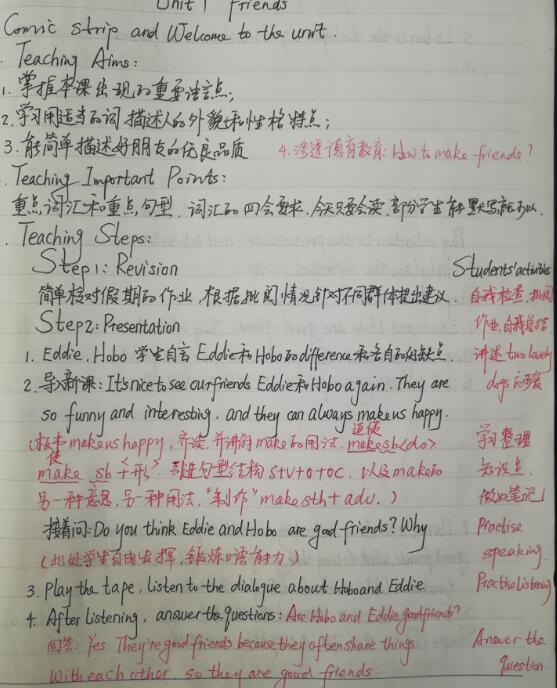 Unit 1 friends
Comic strip and Welcome to the unit.
Teaching Aims:
1. 掌握本课出现的重要语言点;
2. 学习用适当的词描述人的外貌和性格特点;
3. 能简单描述好朋友的优良品质 4. 渗透德育教育: How to make friends?
Teaching Important Points:
重点词汇和重点句型. 词汇的四会要求, 今天只要会读, 部分学生能默写就可以.
Teaching Steps:
Step1: Revision Students' activities
简单核对假期的作业, 根据批阅情况针对不同群体提出建议. 自我检查, 批阅
Step2: Presentation 作业, 自我总结
1. Eddie, Hobo 学生自言 Eddie和Hobo的difference和各自的优缺点. 讲述 two lovely
2. 导入新课: It's nice to see our friends Eddie and Hobo again. They are dogs 的
so funny and interesting, and they can always make us happy.
迫使
(板书 make us happy, 齐读, 并讲解make的用法. make sb <do> 学习整理
使
make sb <形> 引进句型结构 S+V+O+OC, 以及make的 知识点
另一种意思, 另一种用法, "制作" make sth + adv. ) 做好笔记
接着问: Do you think Eddie and Hobo are good friends? Why Practise
(此处学生自由发挥, 锻炼口语能力) speaking.
3. Play the tape, listen to the dialogue about Hobo and Eddie Practise listening
4. After listening, answer the questions: Are Hobo and Eddie good friends?
回答: Yes. They're good friends because they often share things Answer the
with each other, so they are good friends. question.